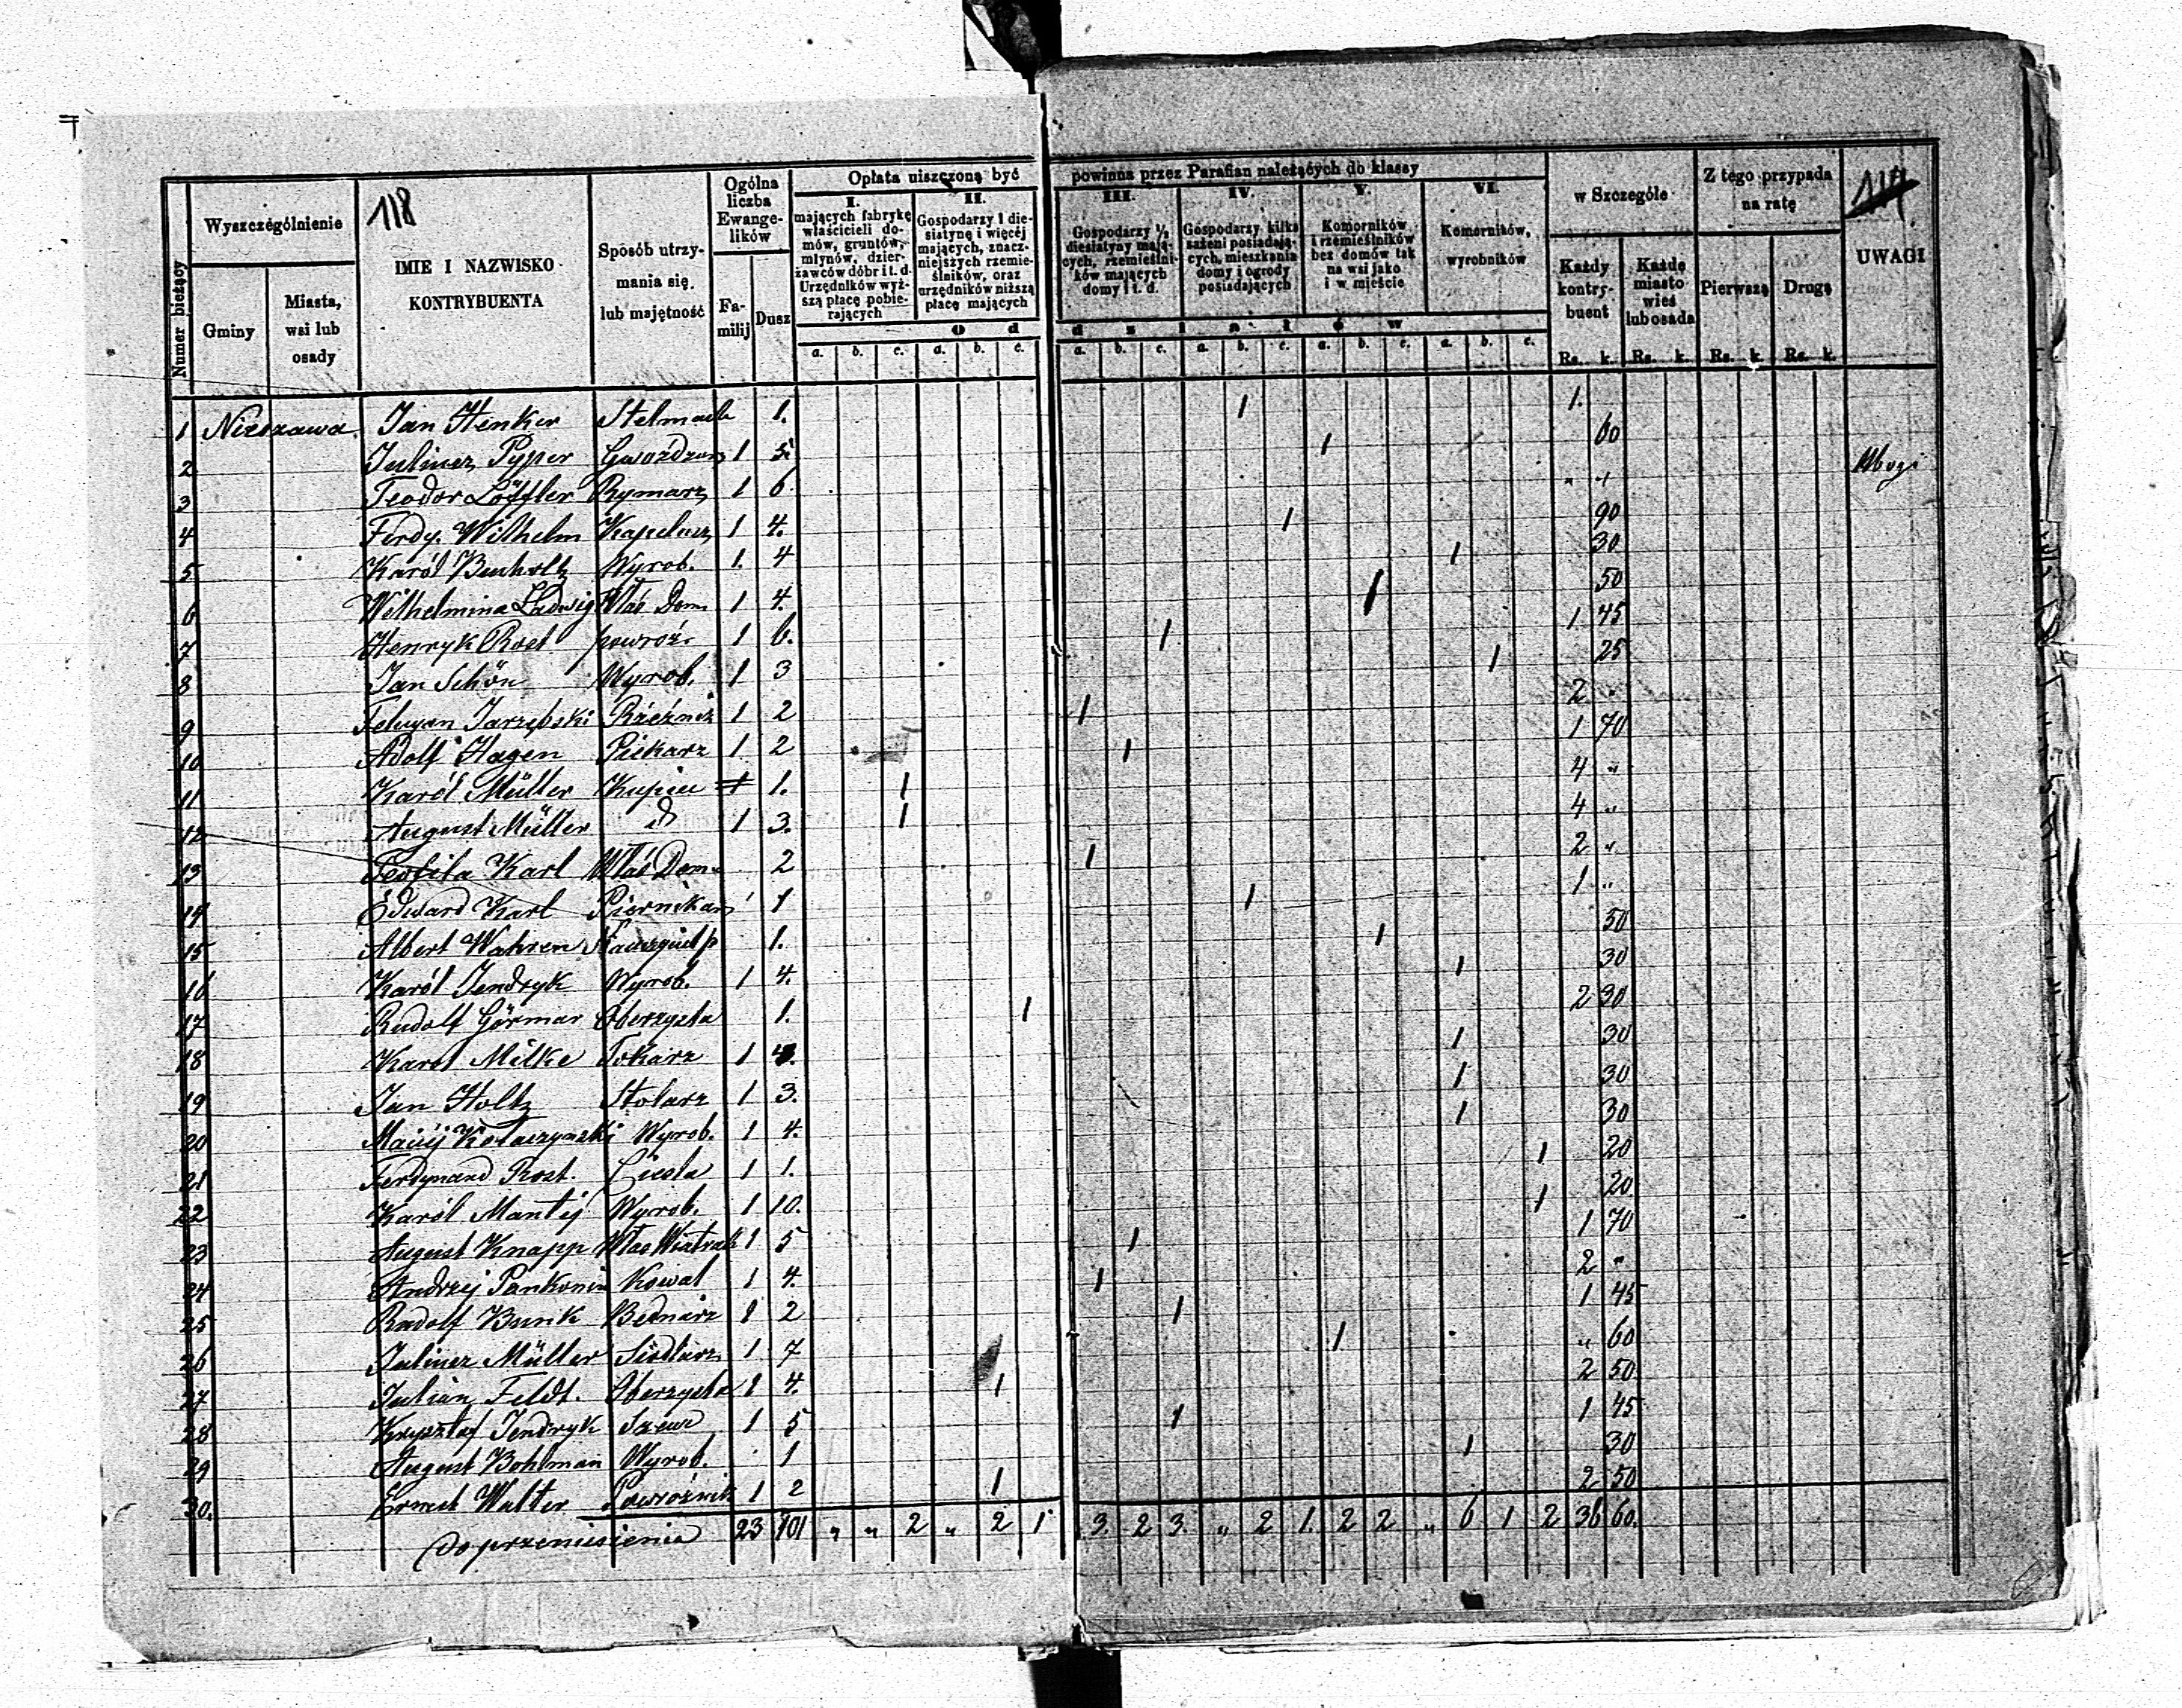 Opłata uiszczoną być powinna przez Parafian należących do klassy
118
Numer bieżący
Wyszczególnienie
Gminy
Miasta, wsi lub osady
IMIE I NAZWISKO KONTRYBUENTA
Sposób utrzymania się lub majętność
Ogólna liczba Ewangelików
Familij
Dusz
I. mających fabrykę właścicieli domów, gruntów, młynów, dzierżawców dóbr i t. d. Urzędników wyższą płacę pobierających
II. Gospodarzy 1 diesiatynę i więcéj mających, znaczniejszych rzemieślników, oraz urzędników niższą płacę mających
III. Gospodarzy 1/2 diesiatyny mających, rzemieślników mających domy i t. d.
IV. Gospodarzy kilka sażeni posiadających, mieszkania domy i ogrody posiadających
V. Komorników i rzemieślników bez domów tak na wsi jako i w mieście
VI. Komorników, wyrobników
O d d z i a ł ó w
a. b. c. a. b. c. a. b. c. a. b. c. a. b. c. a. b. c.
w Szczególe
Każdy kontrybuent
Każde miasto wieś lub osada
Z tego przypada na ratę
Pierwszą
Drugą
Rs. k. Rs. k. Rs. k. Rs. k.
UWAGI
1 Nieszawa Jan Henker Stelmach 1. 1 1.
2 Juliusz Pyper Gwoźdźarz 1 5 1 60
3 Teodor Löffler Rymarz 1 6 " " Ubogi
4 Ferdy. Wilhelm Kapelusz 1 4. 1 90
5 Karól Buchholtz Wyrob. 1. 4 1 30
6 Wilhelmina Ladwig Właś Dom 1 4. 1 50
7 Henryk Rost powroź. 1 6. 1 1 45
8 Jan Schön Wyrob. 1 3 1 25
9 Felicyan Jarzębski Rzeźnik 1 2 1 2 "
10 Adolf Hagen Piekarz 1 2 1 1 70
11 Karól Müller Kupiec 1. 1 4 "
12 August Müller d 1 3. 1 4 "
13 Teofila Karl Właś Domu 2 1 2 "
14 Edward Karl Piernikarz 1 1 1 "
15 Albert Wahren 1. 1 50
16 Karól Jendryk Wyrob. 1 4. 1 30
17 Rudolf Görmar Oberzysta 1. 1 2 30
18 Karol Milke Tokarz 1 1 30
19 Jan Holtz Stolarz 1 3. 1 30
20 Maciéj Kołaszynski Wyrob. 1 4. 1 30
21 Ferdynand Rost. Cieśla 1 1. 1 20
22 Karól Mantéj Wyrob. 1 10. 1 20
23 August Knapp Właś Wiatrak 1 5 1 1 70
24 Andrzej Pankonin Kowal 1 4. 1 2 "
25 Rudolf Bunk Bednarz 1 2 1 1 45
26 Juliusz Müller Siodlarz 1 7 1 " 60
27 Julian Feldt. Oberzysta 1 4. 1 2 50
28 Krysztof Jendryk Szewc 1 5 1 1 45
29 August Bohlman Wyrob. 1 1 30
30. Ernest Walter Powróźnik 1 2 1 2 50
Do przeniesienia 23 101 " " 2 " 2 1 3. 2 3. " 2 1. 2 2 " 6 1 2 36 60.